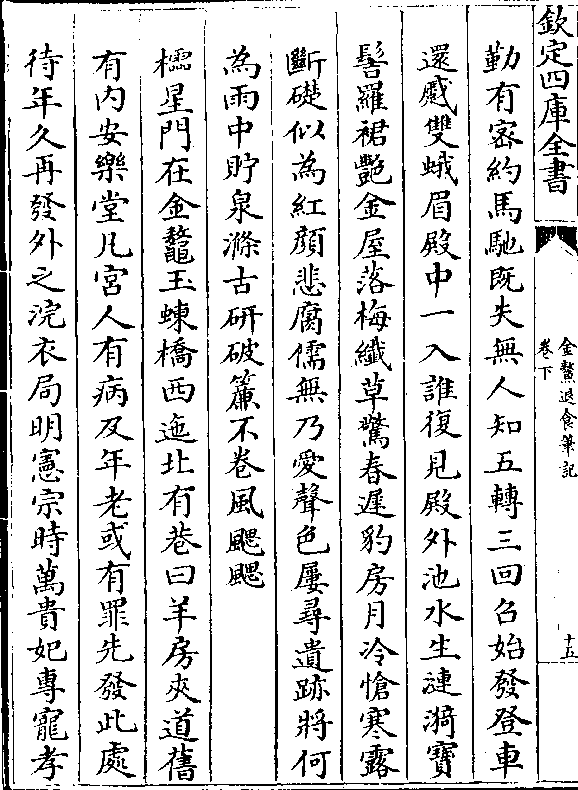 欽定四庫全書
金鰲退食筆記
卷下
十五
勤有宻約馬馳既失無人知五轉三回召始發登車
還蹙雙蛾眉殿中一入誰復見殿外池水生漣漪寳
髻羅裙艶金屋落梅纖草驚春遲豹房月冷愴寒露
斷礎似為紅顔悲腐儒無乃愛聲色屢尋遺跡將何
為雨中貯泉滌古研破簾不卷風颸颸
櫺星門在金鼇玉蝀橋西迤北有巷曰羊房夾道舊
有内安樂堂凡宮人有病及年老或有罪先發此處
待年久再發外之浣衣局明憲宗時萬貴妃專寵孝